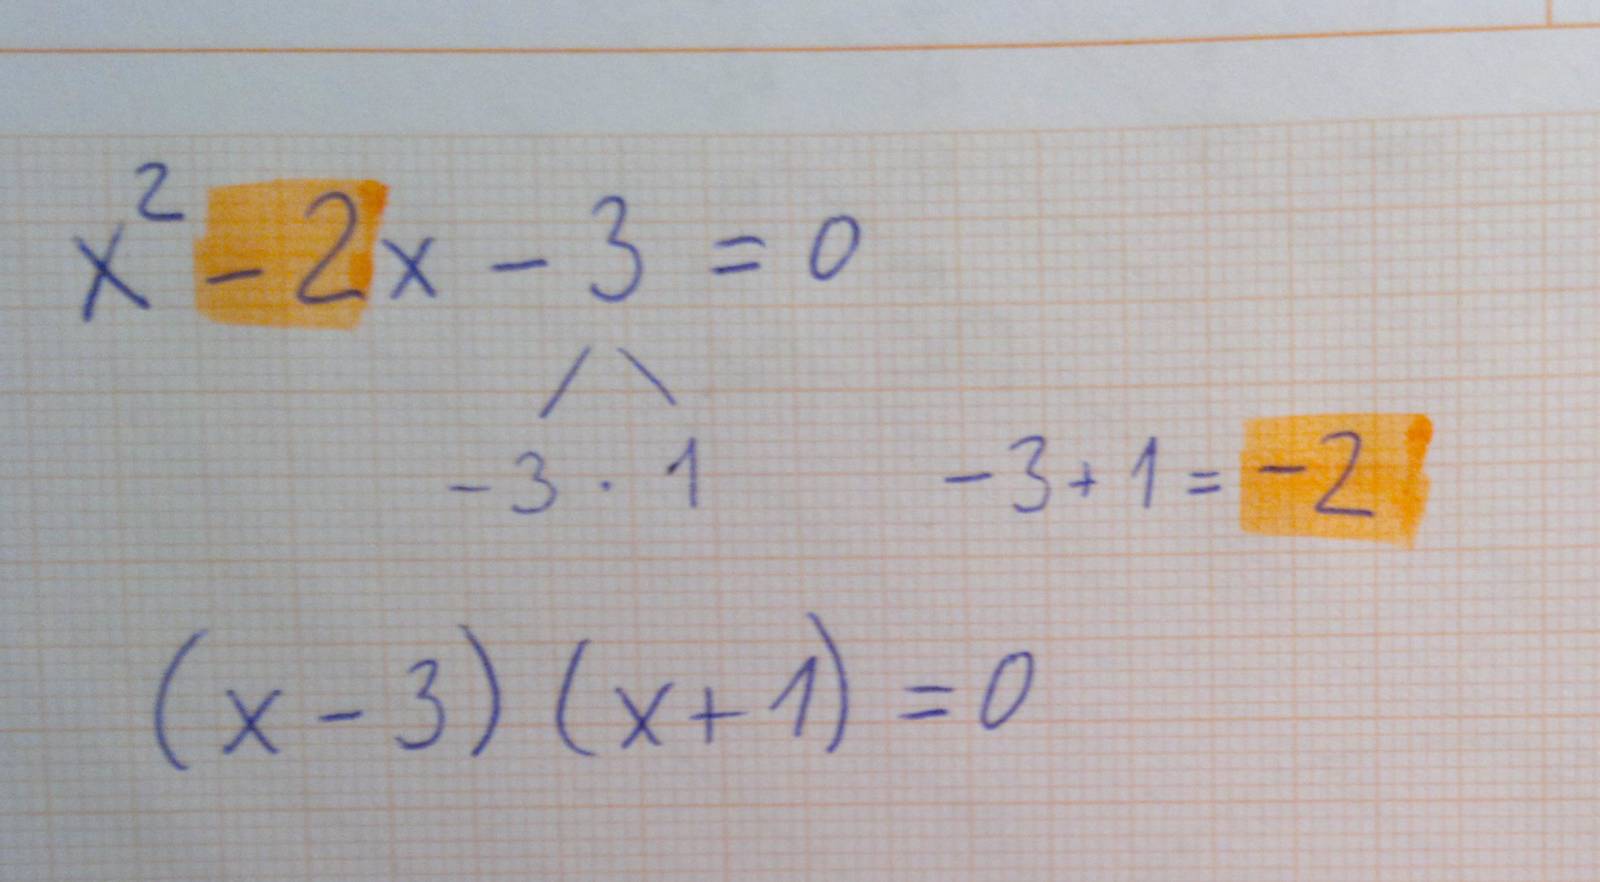 x² - 2x - 3 = 0
-3 · 1    -3 + 1 = -2
(x - 3) (x + 1) = 0